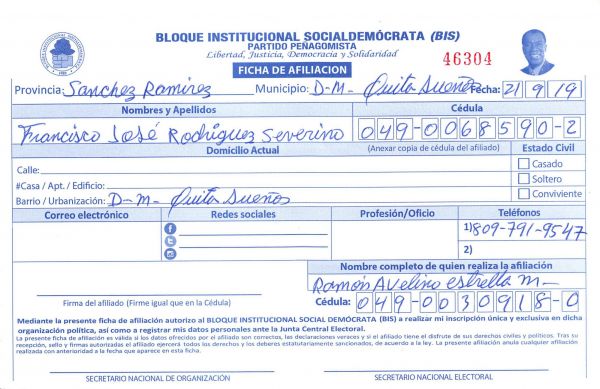 BLOQUE INSTITUCIONAL SOCIALDEMÓCRATA (BIS)
PARTIDO PEÑAGOMISTA
Libertad, Justicia, Democracia y Solidaridad
46304
FICHA DE AFILIACION
Provincia: Sanchez Ramirez Municipio: D-M- Quita Sueños Fecha: 21/9/19
Nombres y Apellidos Cédula
Francisco José Rodriguez Severino 049-0068590-2
Domicilio Actual (Anexar copia de cédula del afiliado) Estado Civil
Calle: Casado
#Casa / Apt. / Edificio: Soltero
Barrio / Urbanización: D-M- Quita Sueños Conviviente
Correo electrónico Redes sociales Profesión/Oficio Teléfonos
1)809-791-9547
2)
Nombre completo de quien realiza la afiliación
Ramón Avelino estrella M-
Firma del afiliado (Firme igual que en la Cédula) Cédula: 049-0030918-0
Mediante la presente ficha de afiliación autorizo al BLOQUE INSTITUCIONAL SOCIAL DEMÓCRATA (BIS) a realizar mi inscripción única y exclusiva en dicha
organización política, así como a registrar mis datos personales ante la Junta Central Electoral.
La presente ficha de afiliación es válida si los datos ofrecidos por el afiliado son correctos, las declaraciones veraces y si el afiliado tiene el disfrute de sus derechos civiles y políticos. Tras su
recepción, sello y firmas autorizadas el afiliado ejercerá todos los derechos y los deberes estatutariamente sancionados, de acuerdo a la ley. La presente afiliación anula cualquier afiliación
realizada con anterioridad a la fecha que aparece en esta ficha.
SECRETARIO NACIONAL DE ORGANIZACIÓN SECRETARIO NACIONAL ELECTORAL